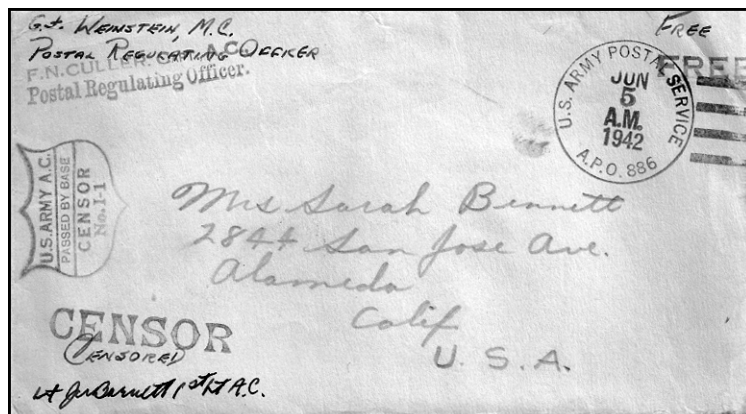 G.J. WEINSTEIN, M.C.
POSTAL REGULATING OFFICER
F.N. CULLER, CAPT. A.C.
Postal Regulating Officer.
FREE
FREE
U.S. ARMY POSTAL SERVICE
JUN
5
A.M.
1942
A.P.O. 886
U.S. ARMY A.C.
PASSED BY BASE
CENSOR
No. I-1
Mrs Sarah Bennett
2844 San Jose Ave.
Alameda
Calif
U. S. A.
CENSOR
(CENSORED)
Barnett 1st Lt A.C.